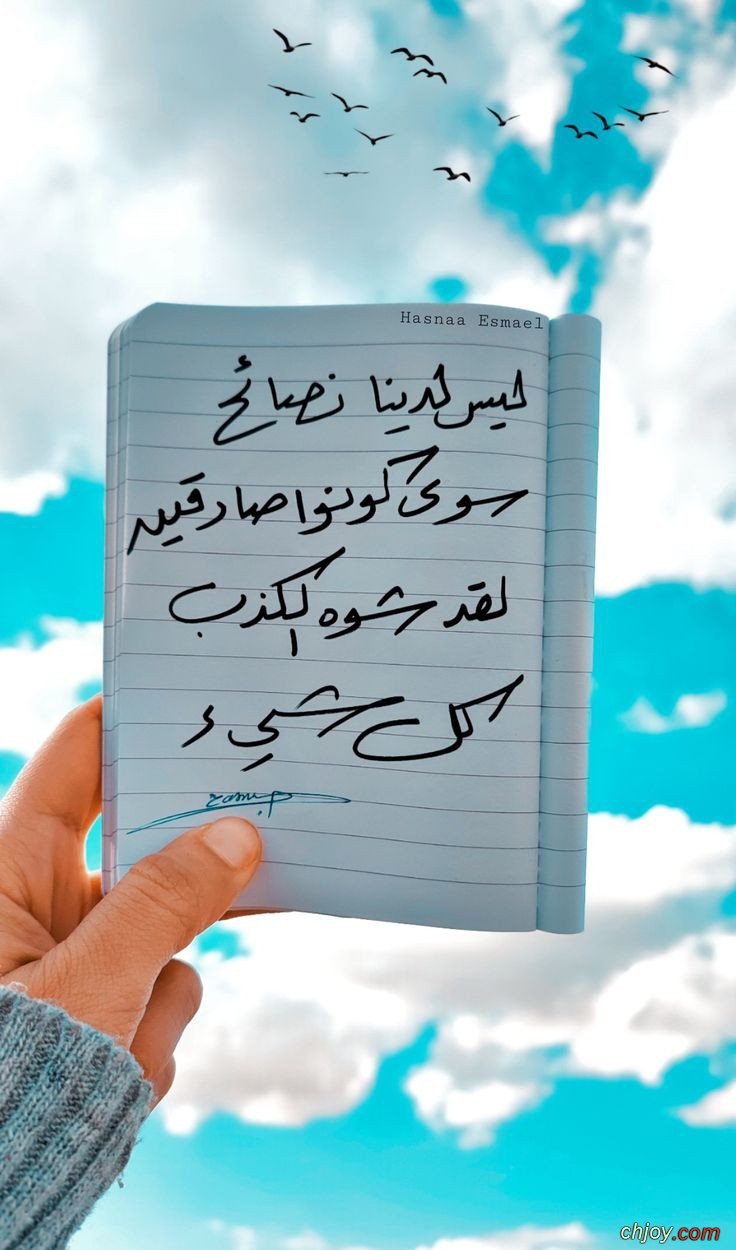 Hasnaa Esmael
ليس لدينا نصائح
سوى كونوا صادقين
لقد شوه الكذب
كل شيء
chjoy.com